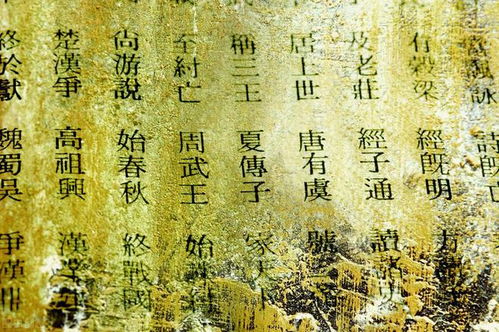 諷詠詩既亡
有穀梁經既明方讀子
及老莊經子通讀諸
居上世唐有虞號
稱三王夏傳子家天下
至紂亡周武王始誅紂
尚游說始春秋終戰國
楚漢爭高祖興漢業
終於獻魏蜀吳爭漢鼎